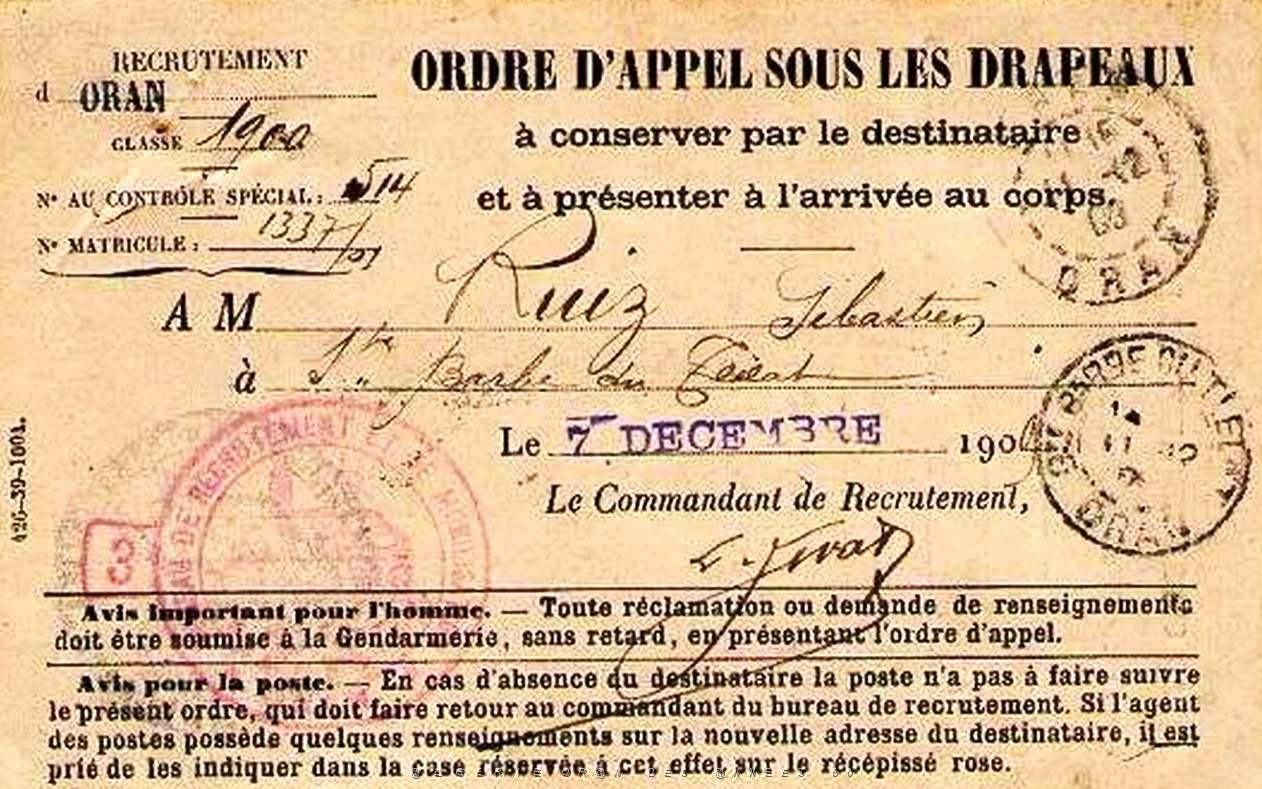 RECRUTEMENT
d ORAN
CLASSE 1900
N° AU CONTRÔLE SPÉCIAL : 514
N° MATRICULE : 1337/01
ORDRE D'APPEL SOUS LES DRAPEAUX
à conserver par le destinataire
et à présenter à l'arrivée au corps.
12
03
ORAN
A M Ruiz Sébastien
à Ste Barbe du Tlélat
Le 7 DECEMBRE 190
Le Commandant de Recrutement,
STE BARBE DU TLELAT
11
ORAN
BUREAU DE RECRUTEMENT
3
426-39-1001.
Avis important pour l'homme. — Toute réclamation ou demande de renseignements
doit être soumise à la Gendarmerie, sans retard, en présentant l'ordre d'appel.
Avis pour la poste. — En cas d'absence du destinataire la poste n'a pas à faire suivre
le présent ordre, qui doit faire retour au commandant du bureau de recrutement. Si l'agent
des postes possède quelques renseignements sur la nouvelle adresse du destinataire, il est
prié de les indiquer dans la case réservée à cet effet sur le récépissé rose.